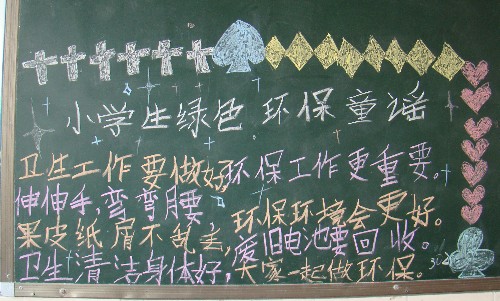 小学生绿色 环保 童谣
卫生工作要做好环保工作更重要。
伸伸手,弯弯腰 环保环境会更好。
果皮纸屑不乱丢,废旧电池要回收。
卫生清洁身体好,大家一起做环保。